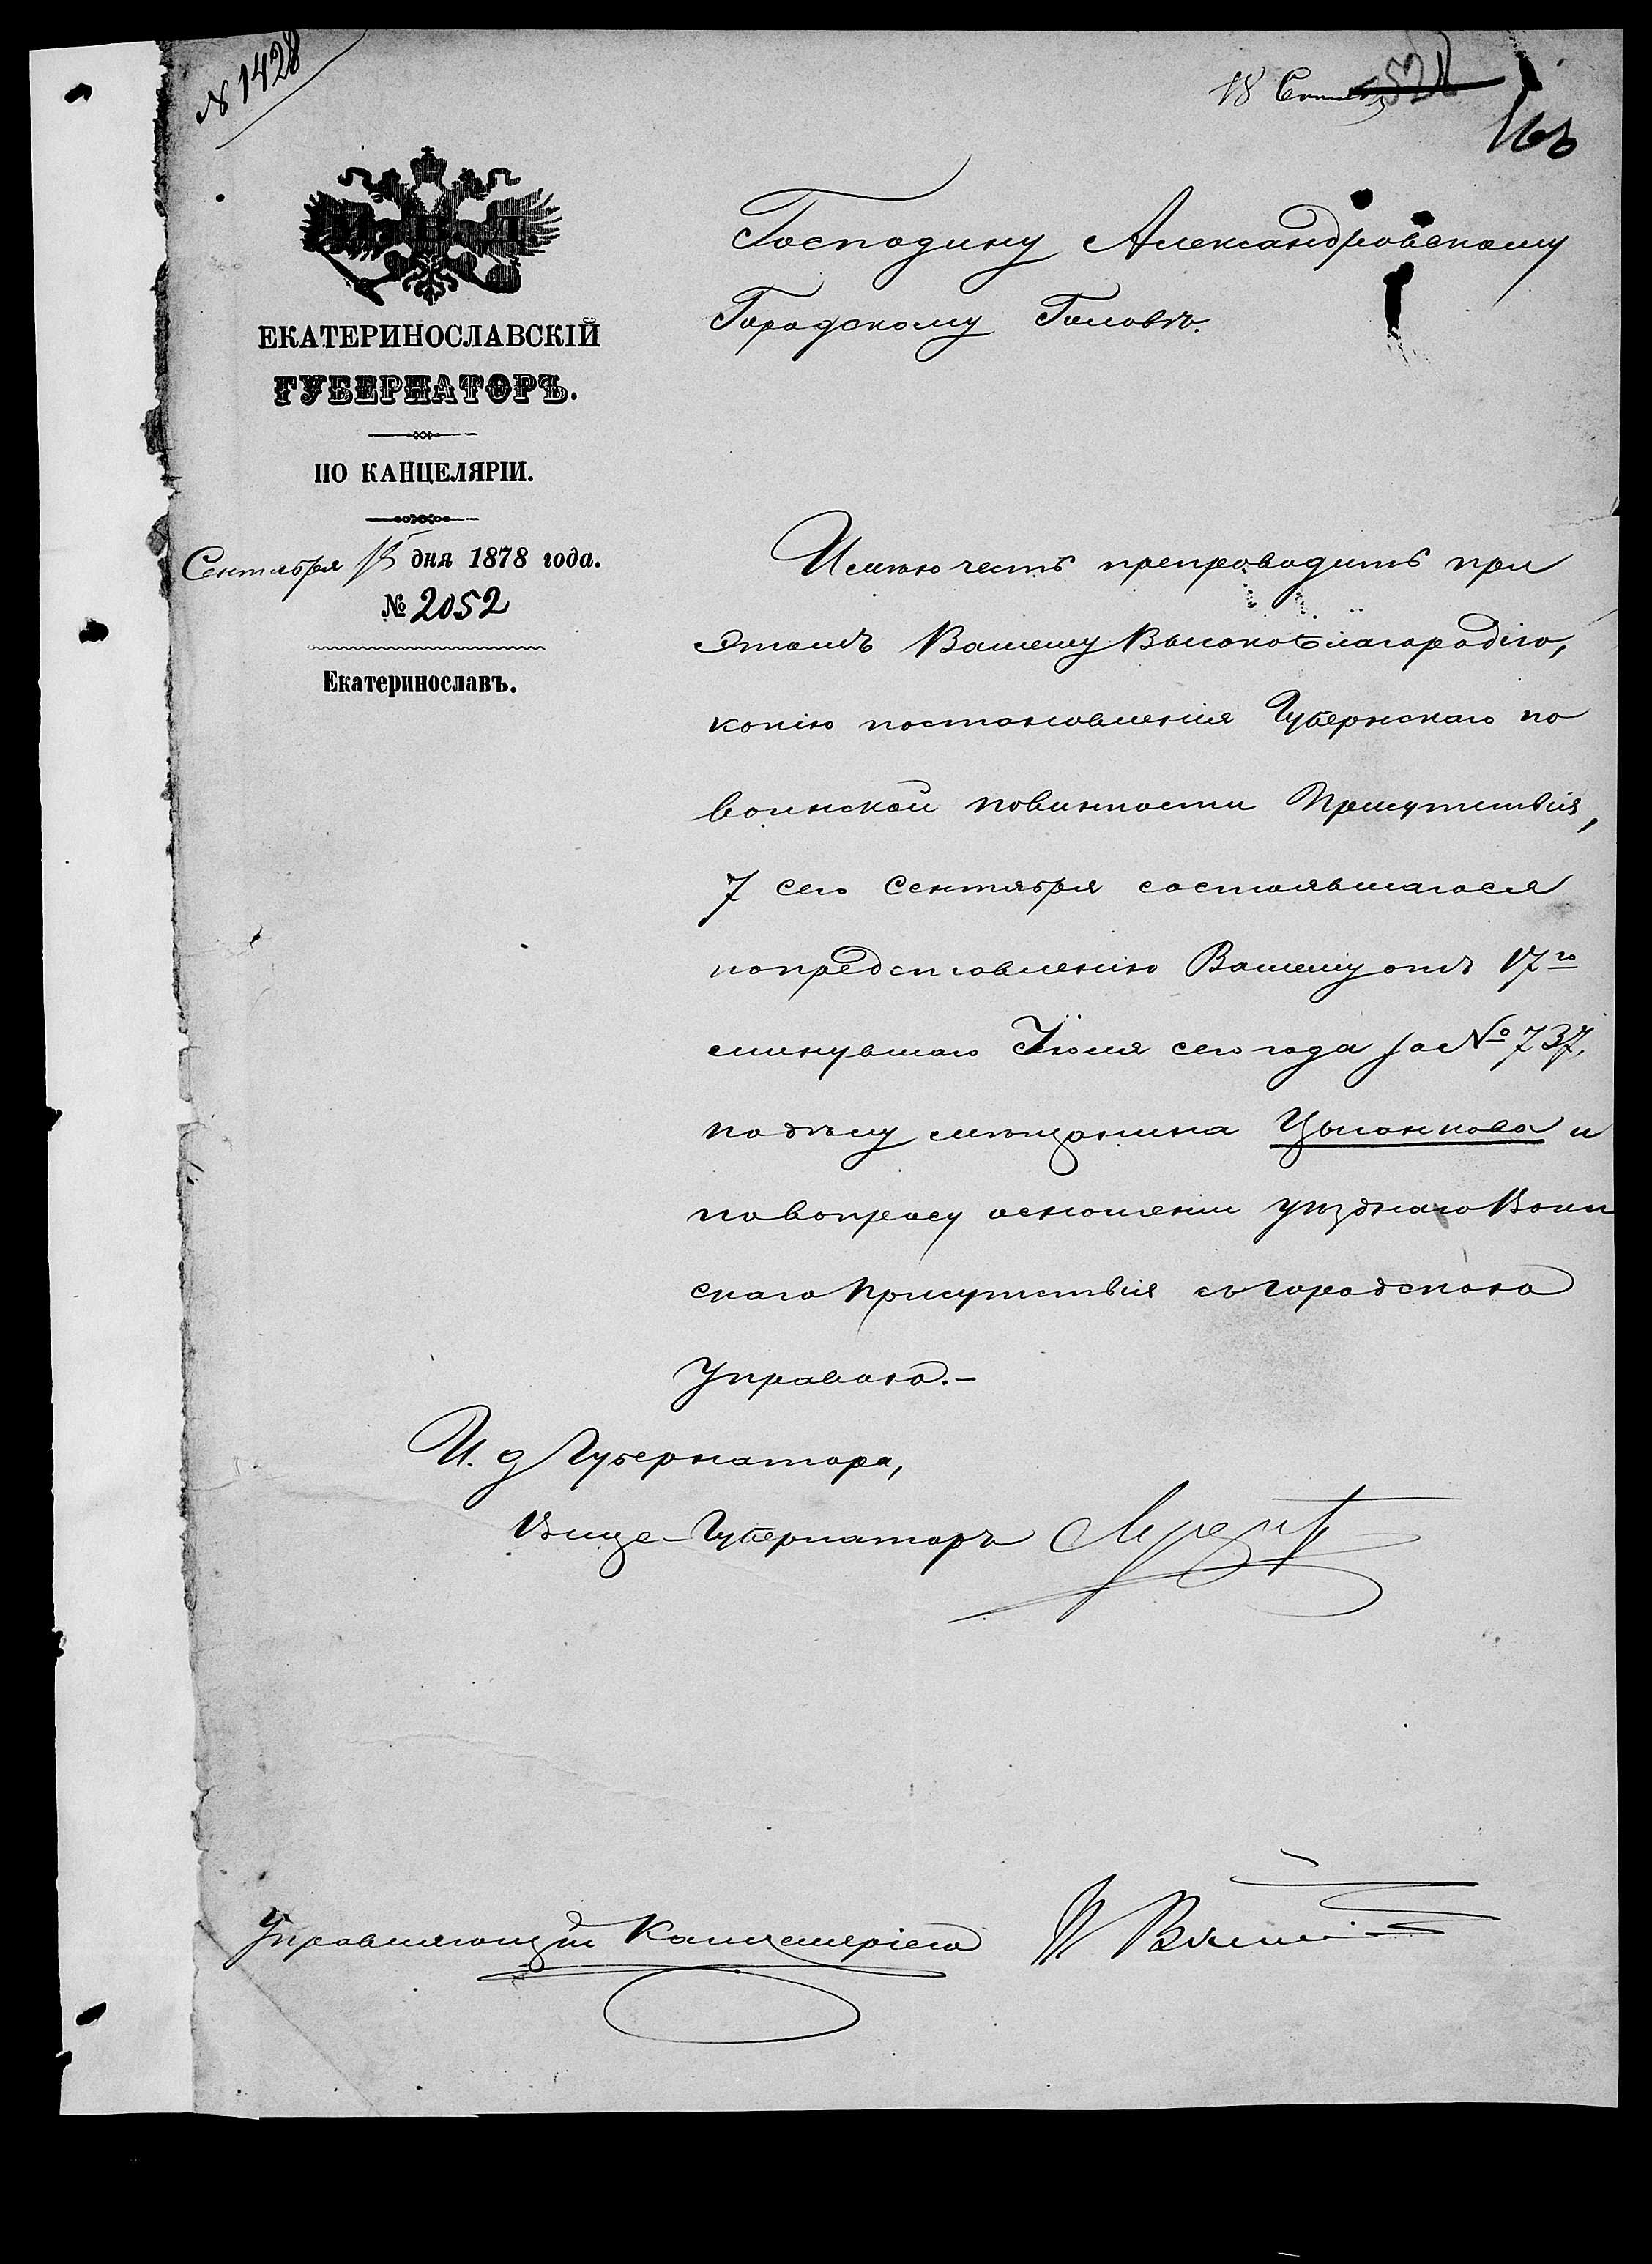 № 1428
18
521
М. В. Д.
Господину Александровскому
Городскому Головѣ.
ЕКАТЕРИНОСЛАВСКІЙ
ГУБЕРНАТОРЪ.
ПО КАНЦЕЛЯРІИ.
Сентября 15 дня 1878 года.
№ 2052
Екатеринославъ.
Имѣю честь препроводить при
этомъ Вашему Высокоблагородію,
копію постановленія Губернскаго по
воинской повинности Присутствія,
7 сего Сентября состоявшагося
по представленію Вашему отъ 17го
минувшаго Іюля сего года за № 737,
по дѣлу мѣщанина Цыганкова и
по вопросу о сношеніи уѣзднаго Воин
скаго Присутствія съ городскою
Управою.-
И. д Губернатора,
Вице-Губернаторъ
Управляющій Канцеляріею